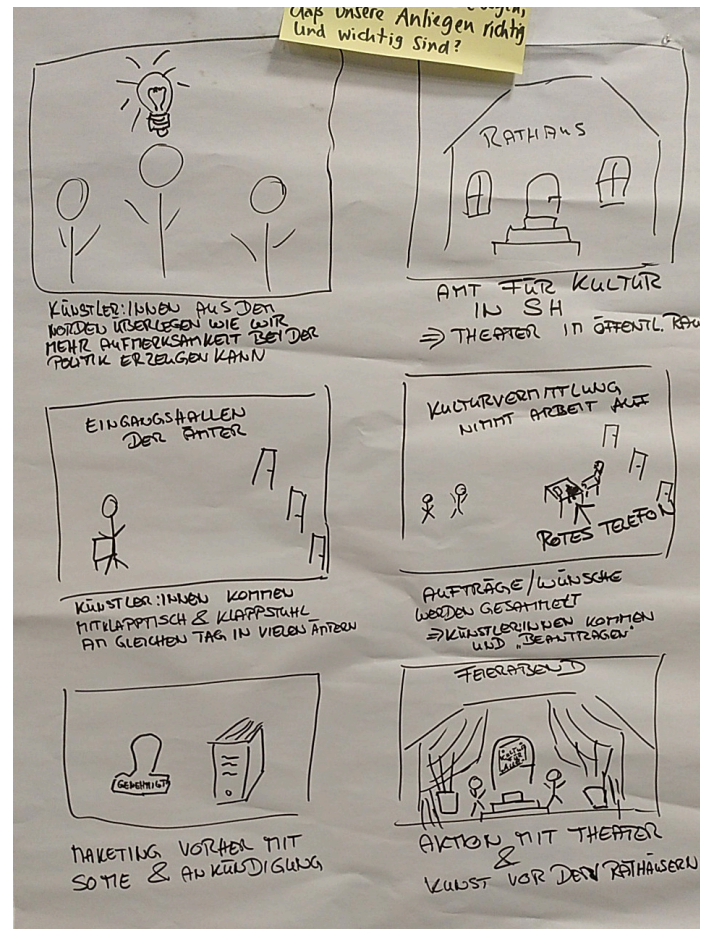 daß unsere Anliegen richtig
und wichtig sind?
KÜNSTLER:INNEN AUS DEM
NORDEN ÜBERLEGEN WIE WIR
MEHR AUFMERKSAMKEIT BEI DER
POLITIK ERZEUGEN KANN
RATHAUS
AMT FÜR KULTUR
IN SH
⇒ THEATER IM ÖFFENTL. RAU
EINGANGSHALLEN
DER ÄMTER
KÜNSTLER:INNEN KOMMEN
MIT KLAPPTISCH & KLAPPSTUHL
AM GLEICHEN TAG IN VIELEN ÄMTERN
KULTURVERMITTLUNG
NIMMT ARBEIT AUF
ROTES TELEFON
AUFTRÄGE/WÜNSCHE
WERDEN GESAMMELT
⇒ KÜNSTLER:INNEN KOMMEN
UND „BEANTRAGEN"
GENEHMIGT
MAKETING VORHER MIT
SOME & ANKÜNDIGUNG
FEIERABEND
KULTUR
FÜR
AKTION MIT THEATER
&
KUNST VOR DEN RATHÄUSERN